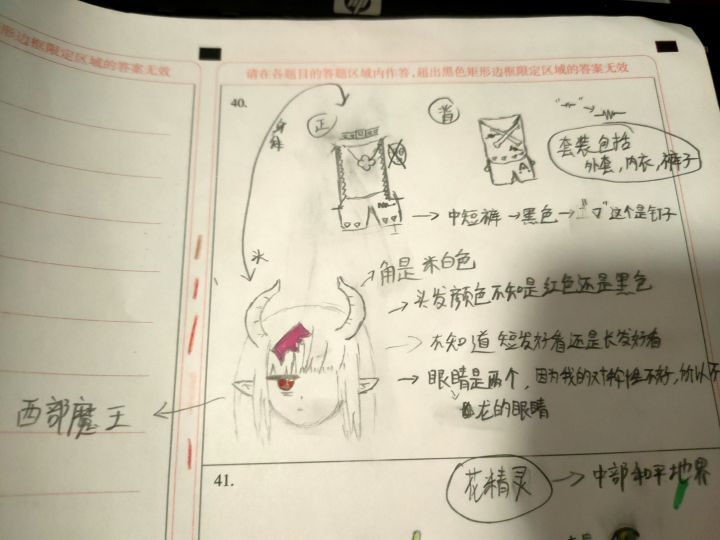 形边框限定区域的答案无效
请在各题目的答题区域内作答，超出黑色矩形边框限定区域的答案无效
40.
正
背
身体
套装包括
外套，内衣，裤子
→中短裤→黑色→"▽"这个是钉子
头
角是米白色
→头发颜色不知是红色还是黑色
→不知道短发好看还是长发好看
→眼睛是两个，因为我的对称性不好，所以不
龙的眼睛
西部魔王
41.
花精灵→中部和平地界